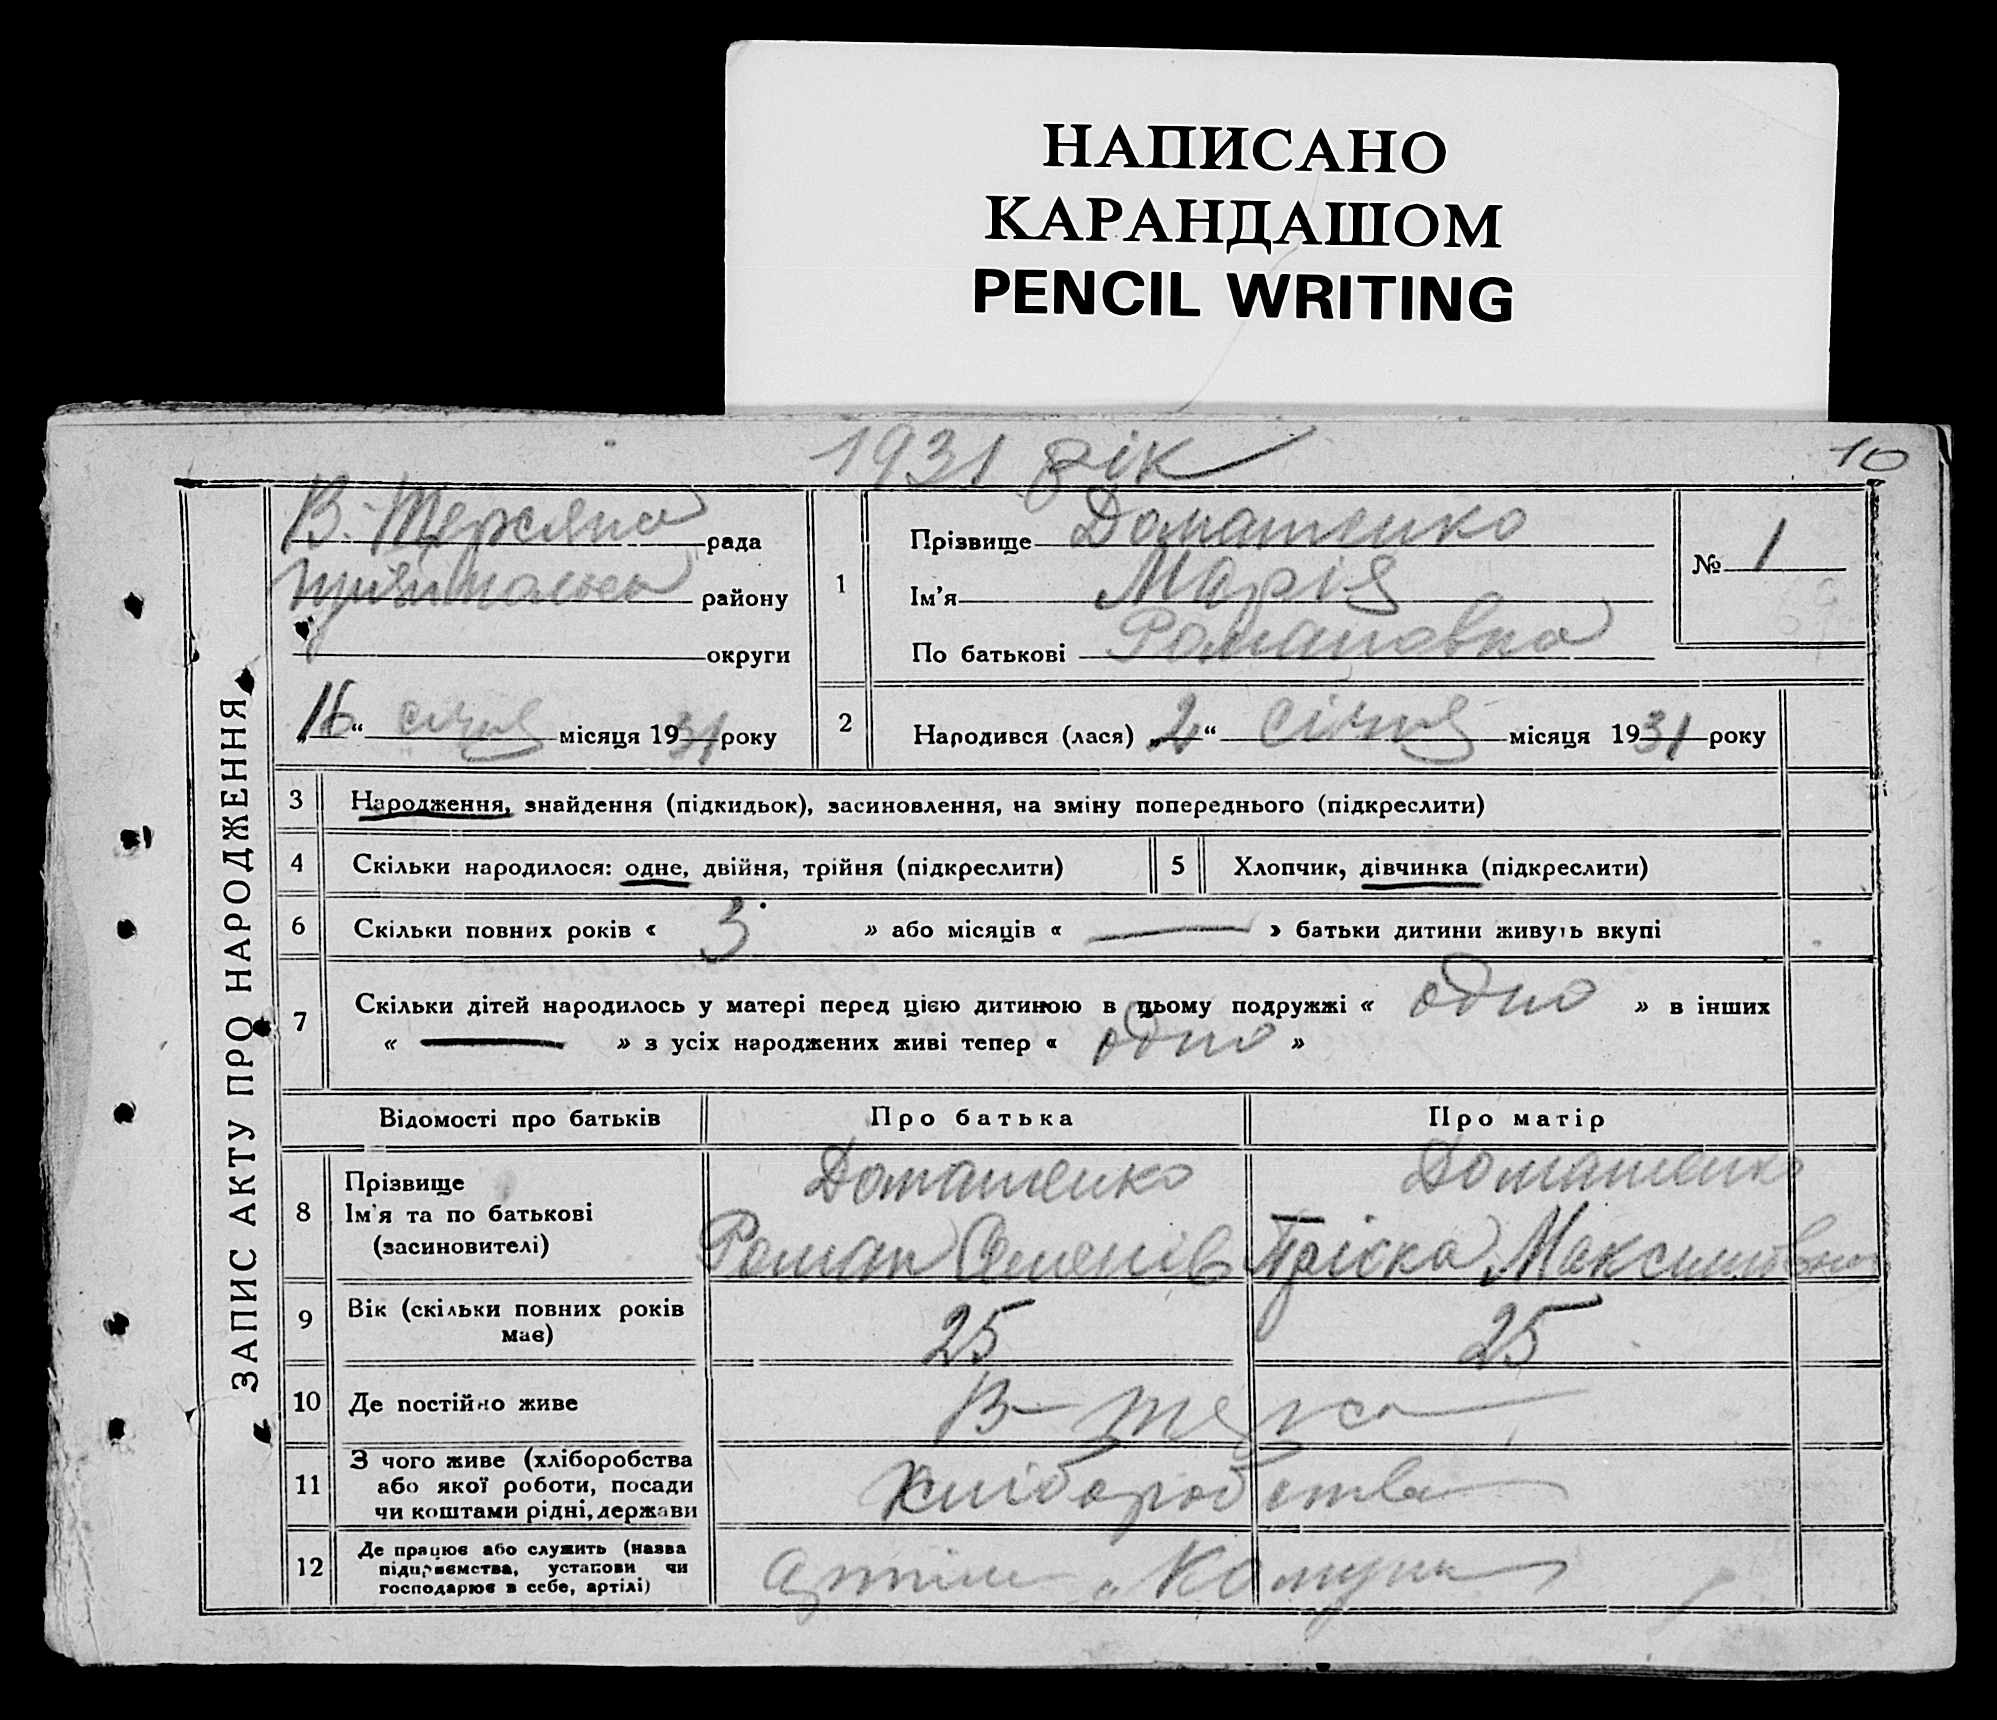 НАПИСАНО
КАРАНДАШОМ
PENCIL WRITING
1931 рік
10
В-Терсяна рада
району
округи
„16“ січня місяця 1931 року
ЗАПИС АКТУ ПРО НАРОДЖЕННЯ
1
Прізвище Доматенко
Ім'я Марія
По батькові Романовна
№ 1
2 Народився (лася) „2“ січня місяця 1931 року
3 Народження, знайдення (підкидьок), засиновлення, на зміну попереднього (підкреслити)
4 Скільки народилося: одне, двійня, трійня (підкреслити)
5 Хлопчик, дівчинка (підкреслити)
6 Скільки повних років « 3 » або місяців « — » батьки дитини живуть вкупі
7 Скільки дітей народилось у матері перед цією дитиною в цьому подружжі « одно » в інших
« — » з усіх народжених живі тепер « одно »
Відомості про батьків Про батька Про матір
8 Прізвище
Ім'я та по батькові
(засиновителі)
Доматенко
Роман Семенів
Доматенко
Пріська Максимовна
9 Вік (скільки повних років
має)
25 25
10 Де постійно живе В-Терса
11 З чого живе (хліборобства
або якої роботи, посади
чи коштами рідні, держави
хліборобства
12 Де працює або служить (назва
підприємства, установи чи
господарює в себе, артілі)
артіль „Комун